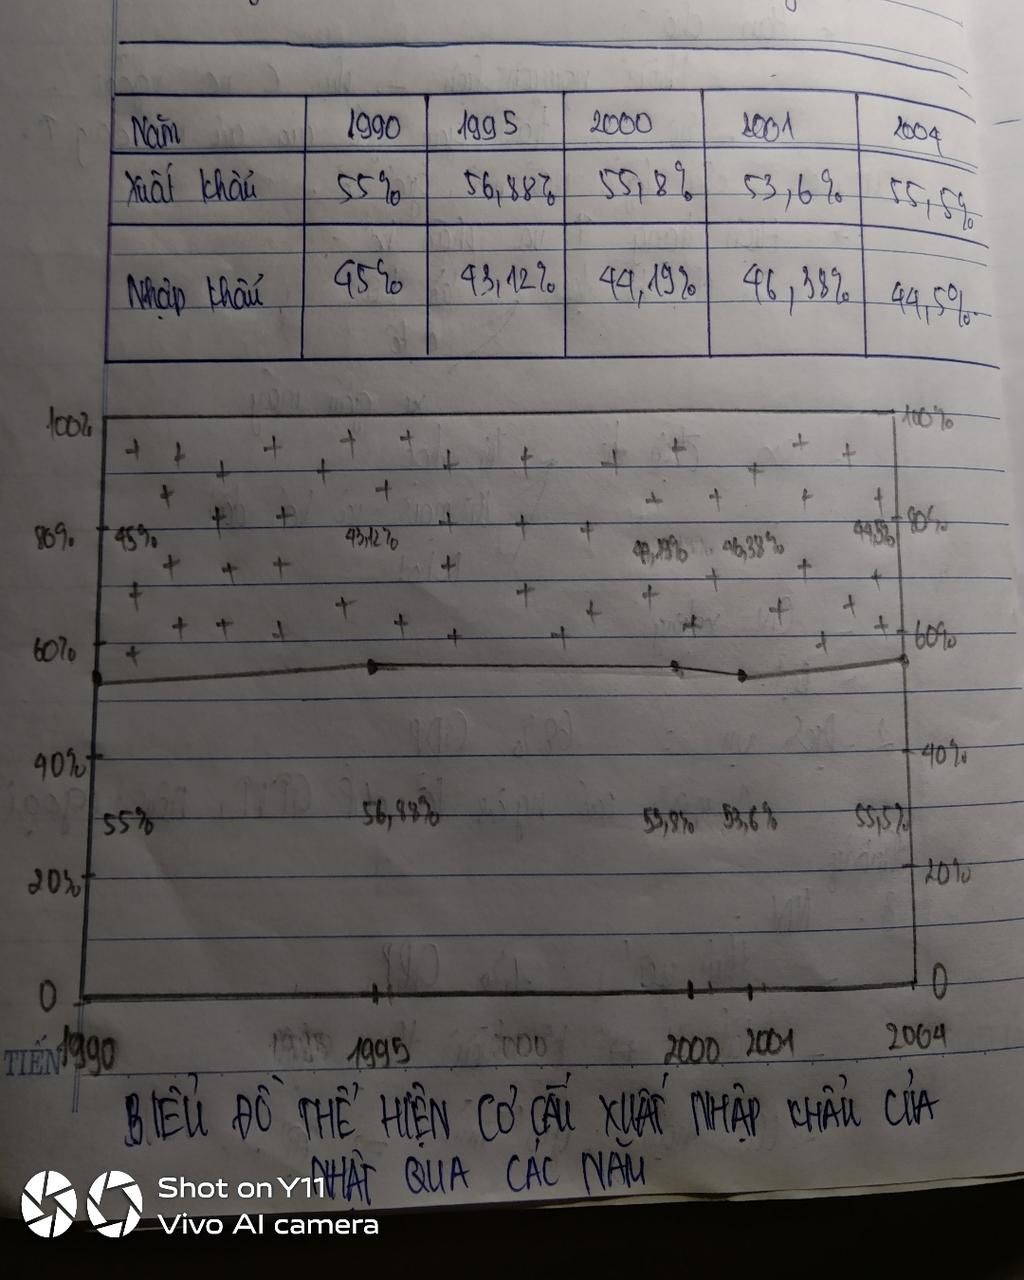 Năm 1990 1995 2000 2001 2004
Xuất khẩu 55% 56,88% 55,8% 53,6% 55,5%
Nhập khẩu 45% 43,12% 44,19% 46,38% 44,5%
100% 100%
80% 45% 43,12% 44,19% 46,38% 44,5% 80%
60% 60%
40% 40%
55% 56,88% 55,8% 53,6% 55,5%
20% 20%
0 0
TIẾN 1990 1995 2000 2001 2004
BIỂU ĐỒ THỂ HIỆN CƠ CẤU XUẤT NHẬP KHẨU CỦA
NHẬT QUA CÁC NĂM
Shot on Y11
Vivo AI camera